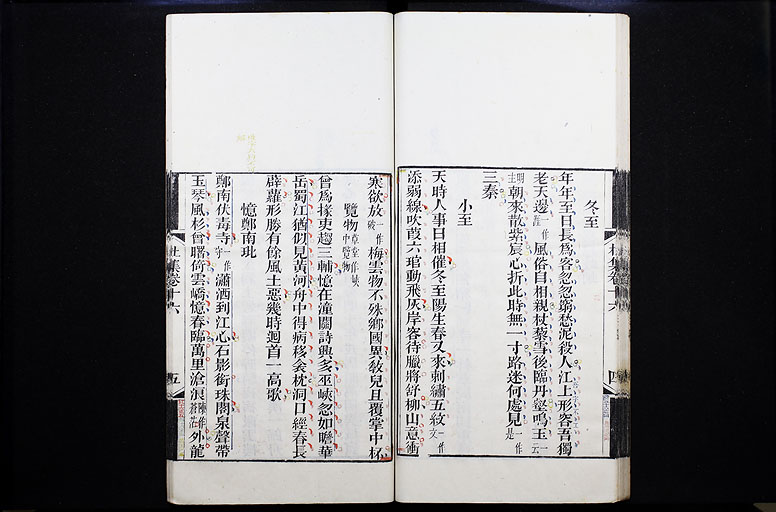 冬至
年年至日長為客忽忽窮愁泥殺人江上形容吾獨
老天邊一作涯風俗自相親杖藜雪後臨丹壑鳴玉一云
明主朝來散紫宸心折此時無一寸路迷何處見一作是
三秦
小至
天時人事日相催冬至陽生春又來刺繡五紋一作文
添弱線吹葭六琯動飛灰岸容待臘將舒柳山意衝
杜集卷十六
四
寒欲放一作破梅雲物不殊鄉國異教兒且覆掌中杯
覽物草堂作峽中覽物
曾為掾吏趨三輔憶在潼關詩興多巫峽忽如瞻華
岳蜀江猶似見黃河舟中得病移衾枕洞口經春長
薜蘿形勝有餘風土惡幾時迴首一高歌
憶鄭南玭
鄭南伏毒寺一作守瀟洒到江心石影銜珠閣泉聲帶
玉琴風杉曾曙倚雲嶠憶春臨萬里滄浪陳作蒼茫外龍
杜集卷十六
五